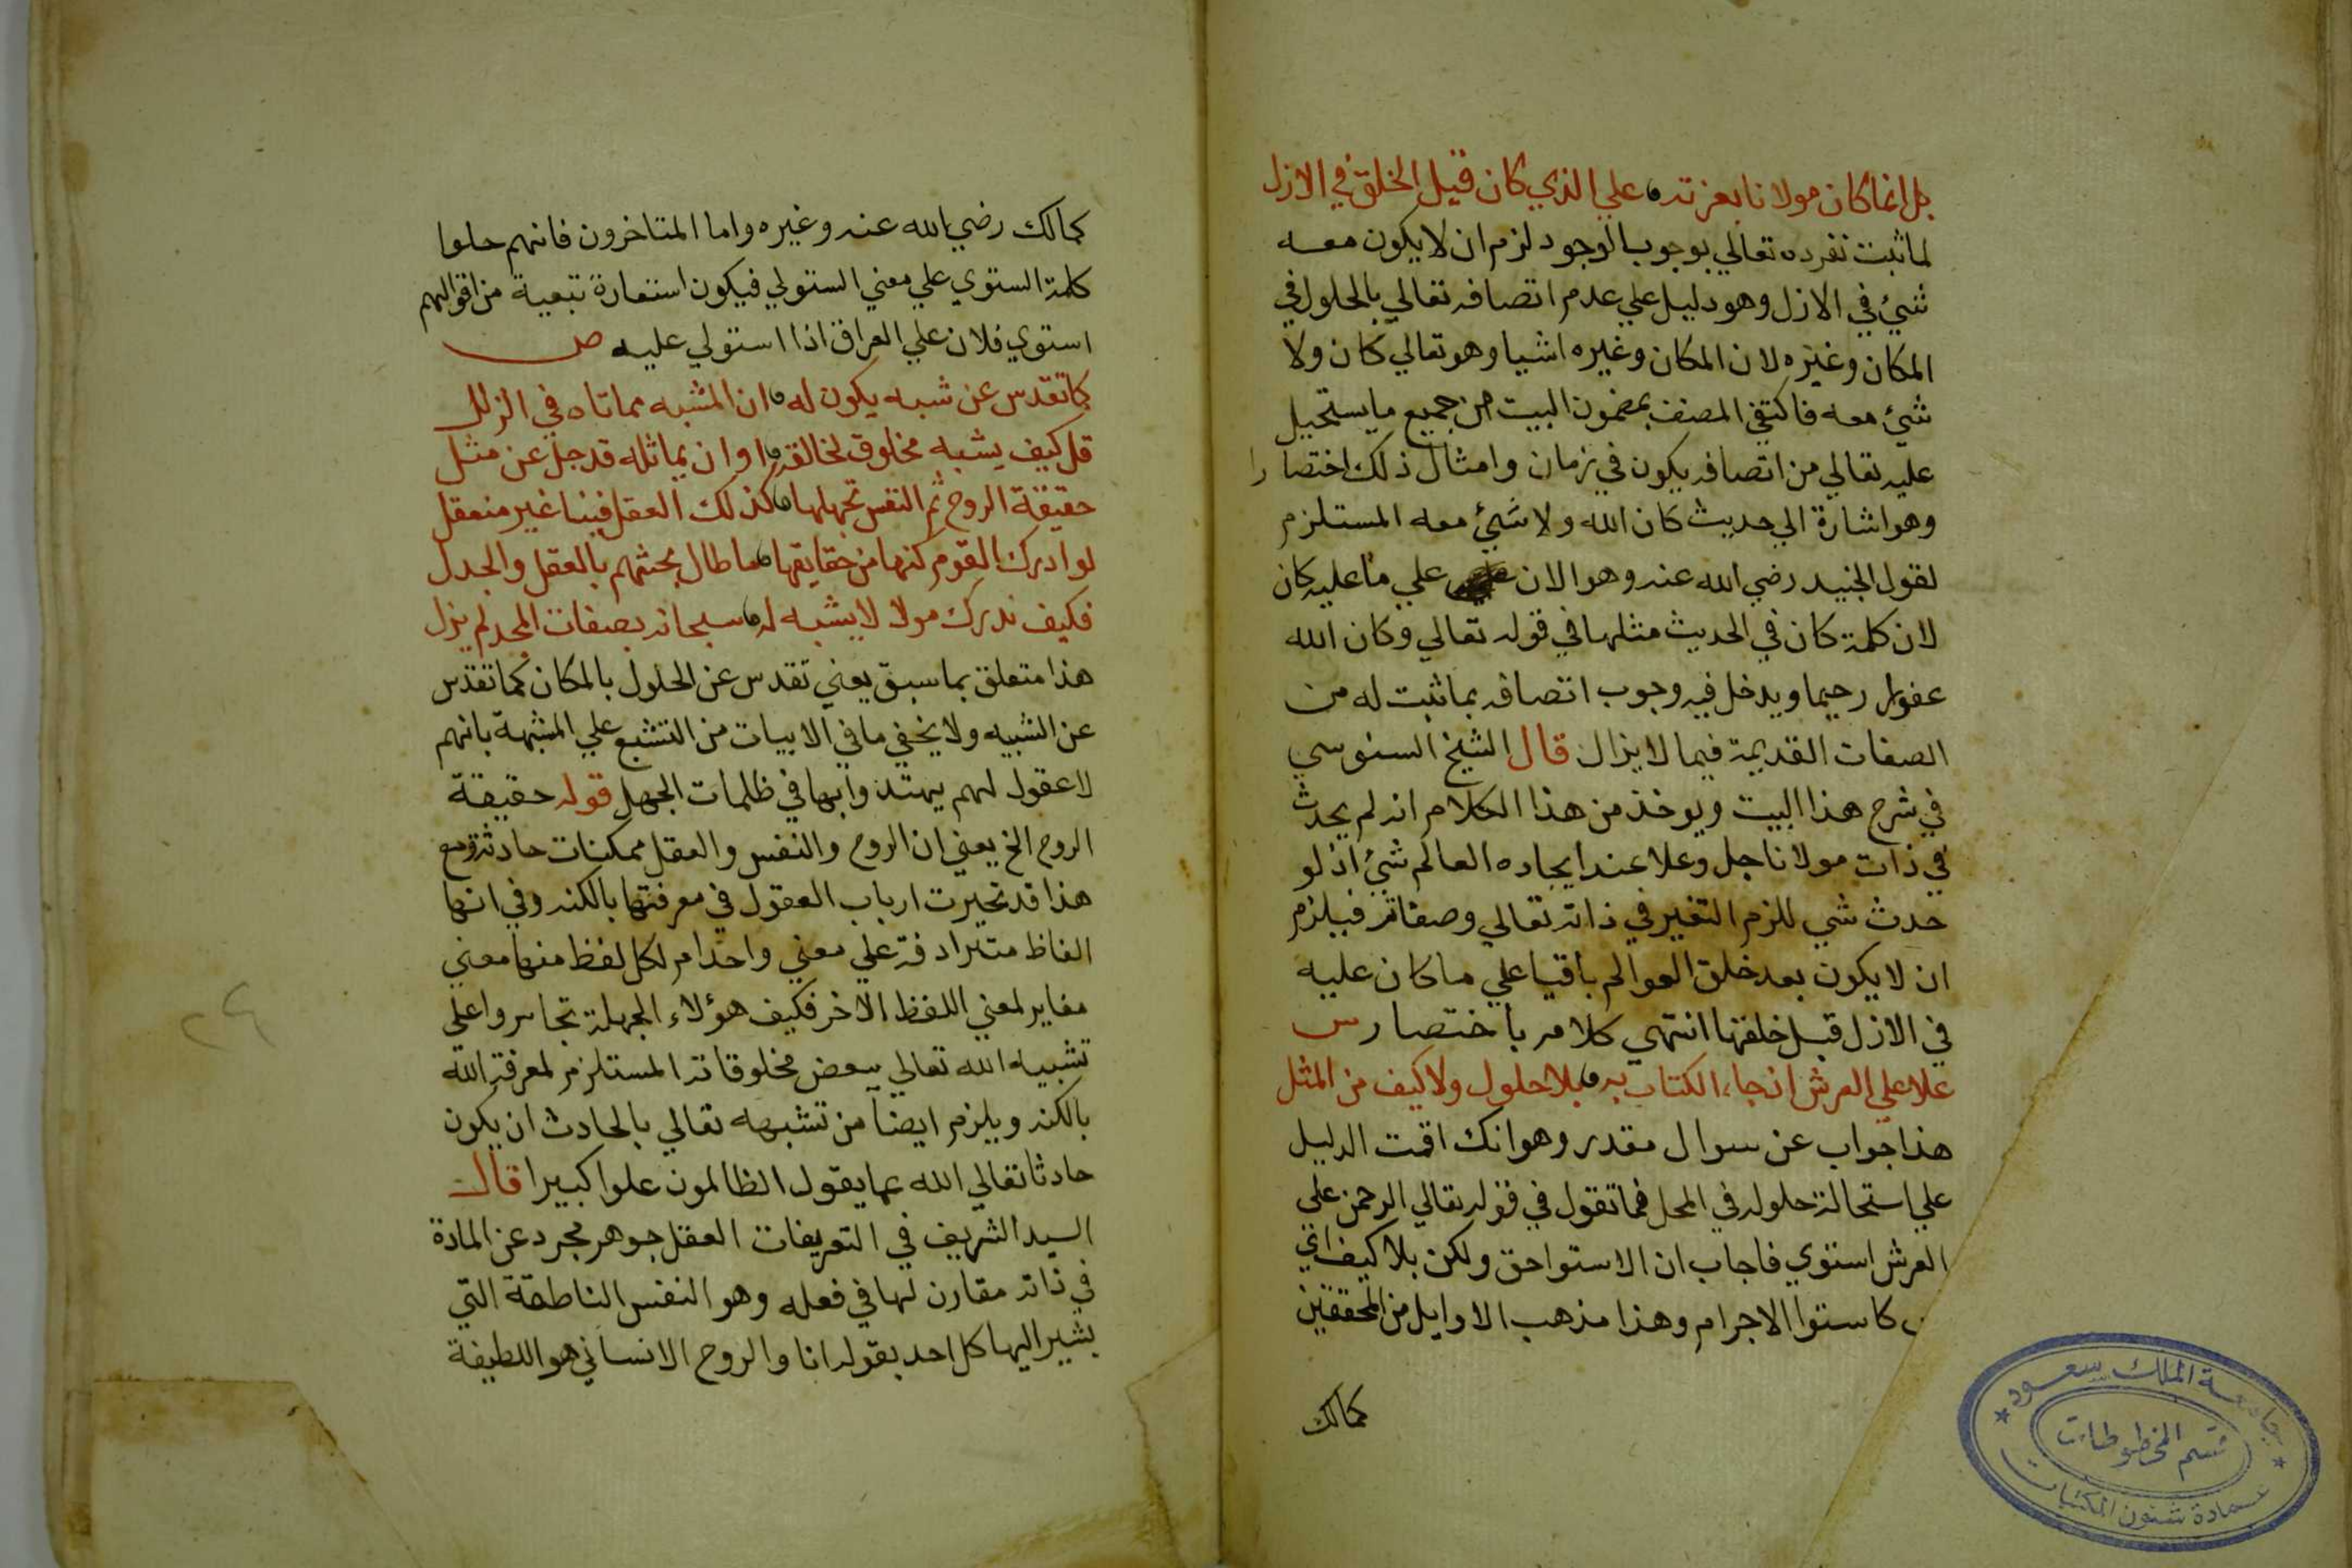 بل انما كان مولانا بعزته علي الذي كان قبل الخلق في الازل
لما ثبت تفرده تعالي بوجوب الوجود لزم ان لا يكون معه
شيئ في الازل وهو دليل علي عدم اتصافه تعالي بالحلول في
المكان وغيره لان المكان وغيره اشيا وهو تعالي كان ولا
شيئ معه فاكتفي المصنف بمضمون البيت من جميع ما يستحيل
عليه تعالي من اتصافه بكون في زمان وامثال ذلك اختصارا
وهو اشارة الي حديث كان الله ولا شيئ معه المستلزم
لقول الجنيد رضي الله عنه وهو الان علي ما عليه كان
لان كلمة كان في الحديث مثلها في قوله تعالي وكان الله
غفورا رحيما ويدخل فيه وجوب اتصافه بما ثبت له من
الصفات القديمة فيما لا يزال قال الشيخ السنوسي
في شرح هذا البيت ويوخذ من هذا الكلام انه لم يحدث
في ذات مولانا جل وعلا عند ايجاده العالم شيئ اذ لو
حدث شي للزم التغير في ذاته تعالي وصفاته فيلزم
ان لا يكون بعد خلق العوالم باقيا علي ما كان عليه
في الازل قبل خلقها انتهي كلامه باختصار س
علا علي العرش اذ جاء الكتاب به بلا حلول ولا كيف من المثل
هذا جواب عن سوال مقدر وهو انك اقمت الدليل
علي استحالة حلوله في المحل فما تقول في قوله تعالي الرحمن علي
العرش استوي فاجاب ان الاستوا حق ولكن بلا كيف اي
كاستوا الاجرام وهذا مذهب الاوايل من المحققين
كمالك
جامعة الملك سعود
قسم المخطوطات
عمادة شئون المكتبات
كمالك رضي الله عنه وغيره واما المتاخرون فانهم حملوا
كلمة استوي علي معني استولي فيكون استعارة تبعية من اقوالهم
استوي فلان علي العراق اذا استولي عليه ص
كما تقدس عن شبه يكون له ان المشبه مما تاه في الزلل
قل كيف يشبه مخلوق لخالقه او ان يماثله قد جل عن مثل
حقيقة الروح ثم النفس تجهلها كذلك العقل فينا غير منعقل
لو ادرك القوم كنها من حقايقها ما طال بحثهم بالعقل والجدل
فكيف ندرك مولا لا يشبه له سبحانه بصفات المجد لم يزل
هذا متعلق بما سبق يعني تقدس عن الحلول بالمكان كما تقدس
عن الشبيه ولا يخفي ما في الابيات من التشبع علي المشبهة بانهم
لا عقول لهم يهتدوا بها في ظلمات الجهل قوله حقيقة
الروح الخ يعني ان الروح والنفس والعقل ممكنات حادثة ومع
هذا قد تحيرت ارباب العقول في معرفتها بالكنه وفي انها
الفاظ مترادفة علي معني واحد ام لكل لفظ منها معني
مغاير لمعني اللفظ الاخر فكيف هؤلاء الجهلة تجاسروا علي
تشبيه الله تعالي ببعض مخلوقاته المستلزم لمعرفة الله
بالكنه ويلزم ايضا من تشبهه تعالي بالحادث ان يكون
حادثا تعالي الله عما يقول الظالمون علوا كبيرا قال
السيد الشريف في التعريفات العقل جوهر مجرد عن المادة
في ذاته مقارن لها في فعله وهو النفس الناطقة التي
يشير اليها كل احد بقوله انا والروح الانساني هو اللطيفة